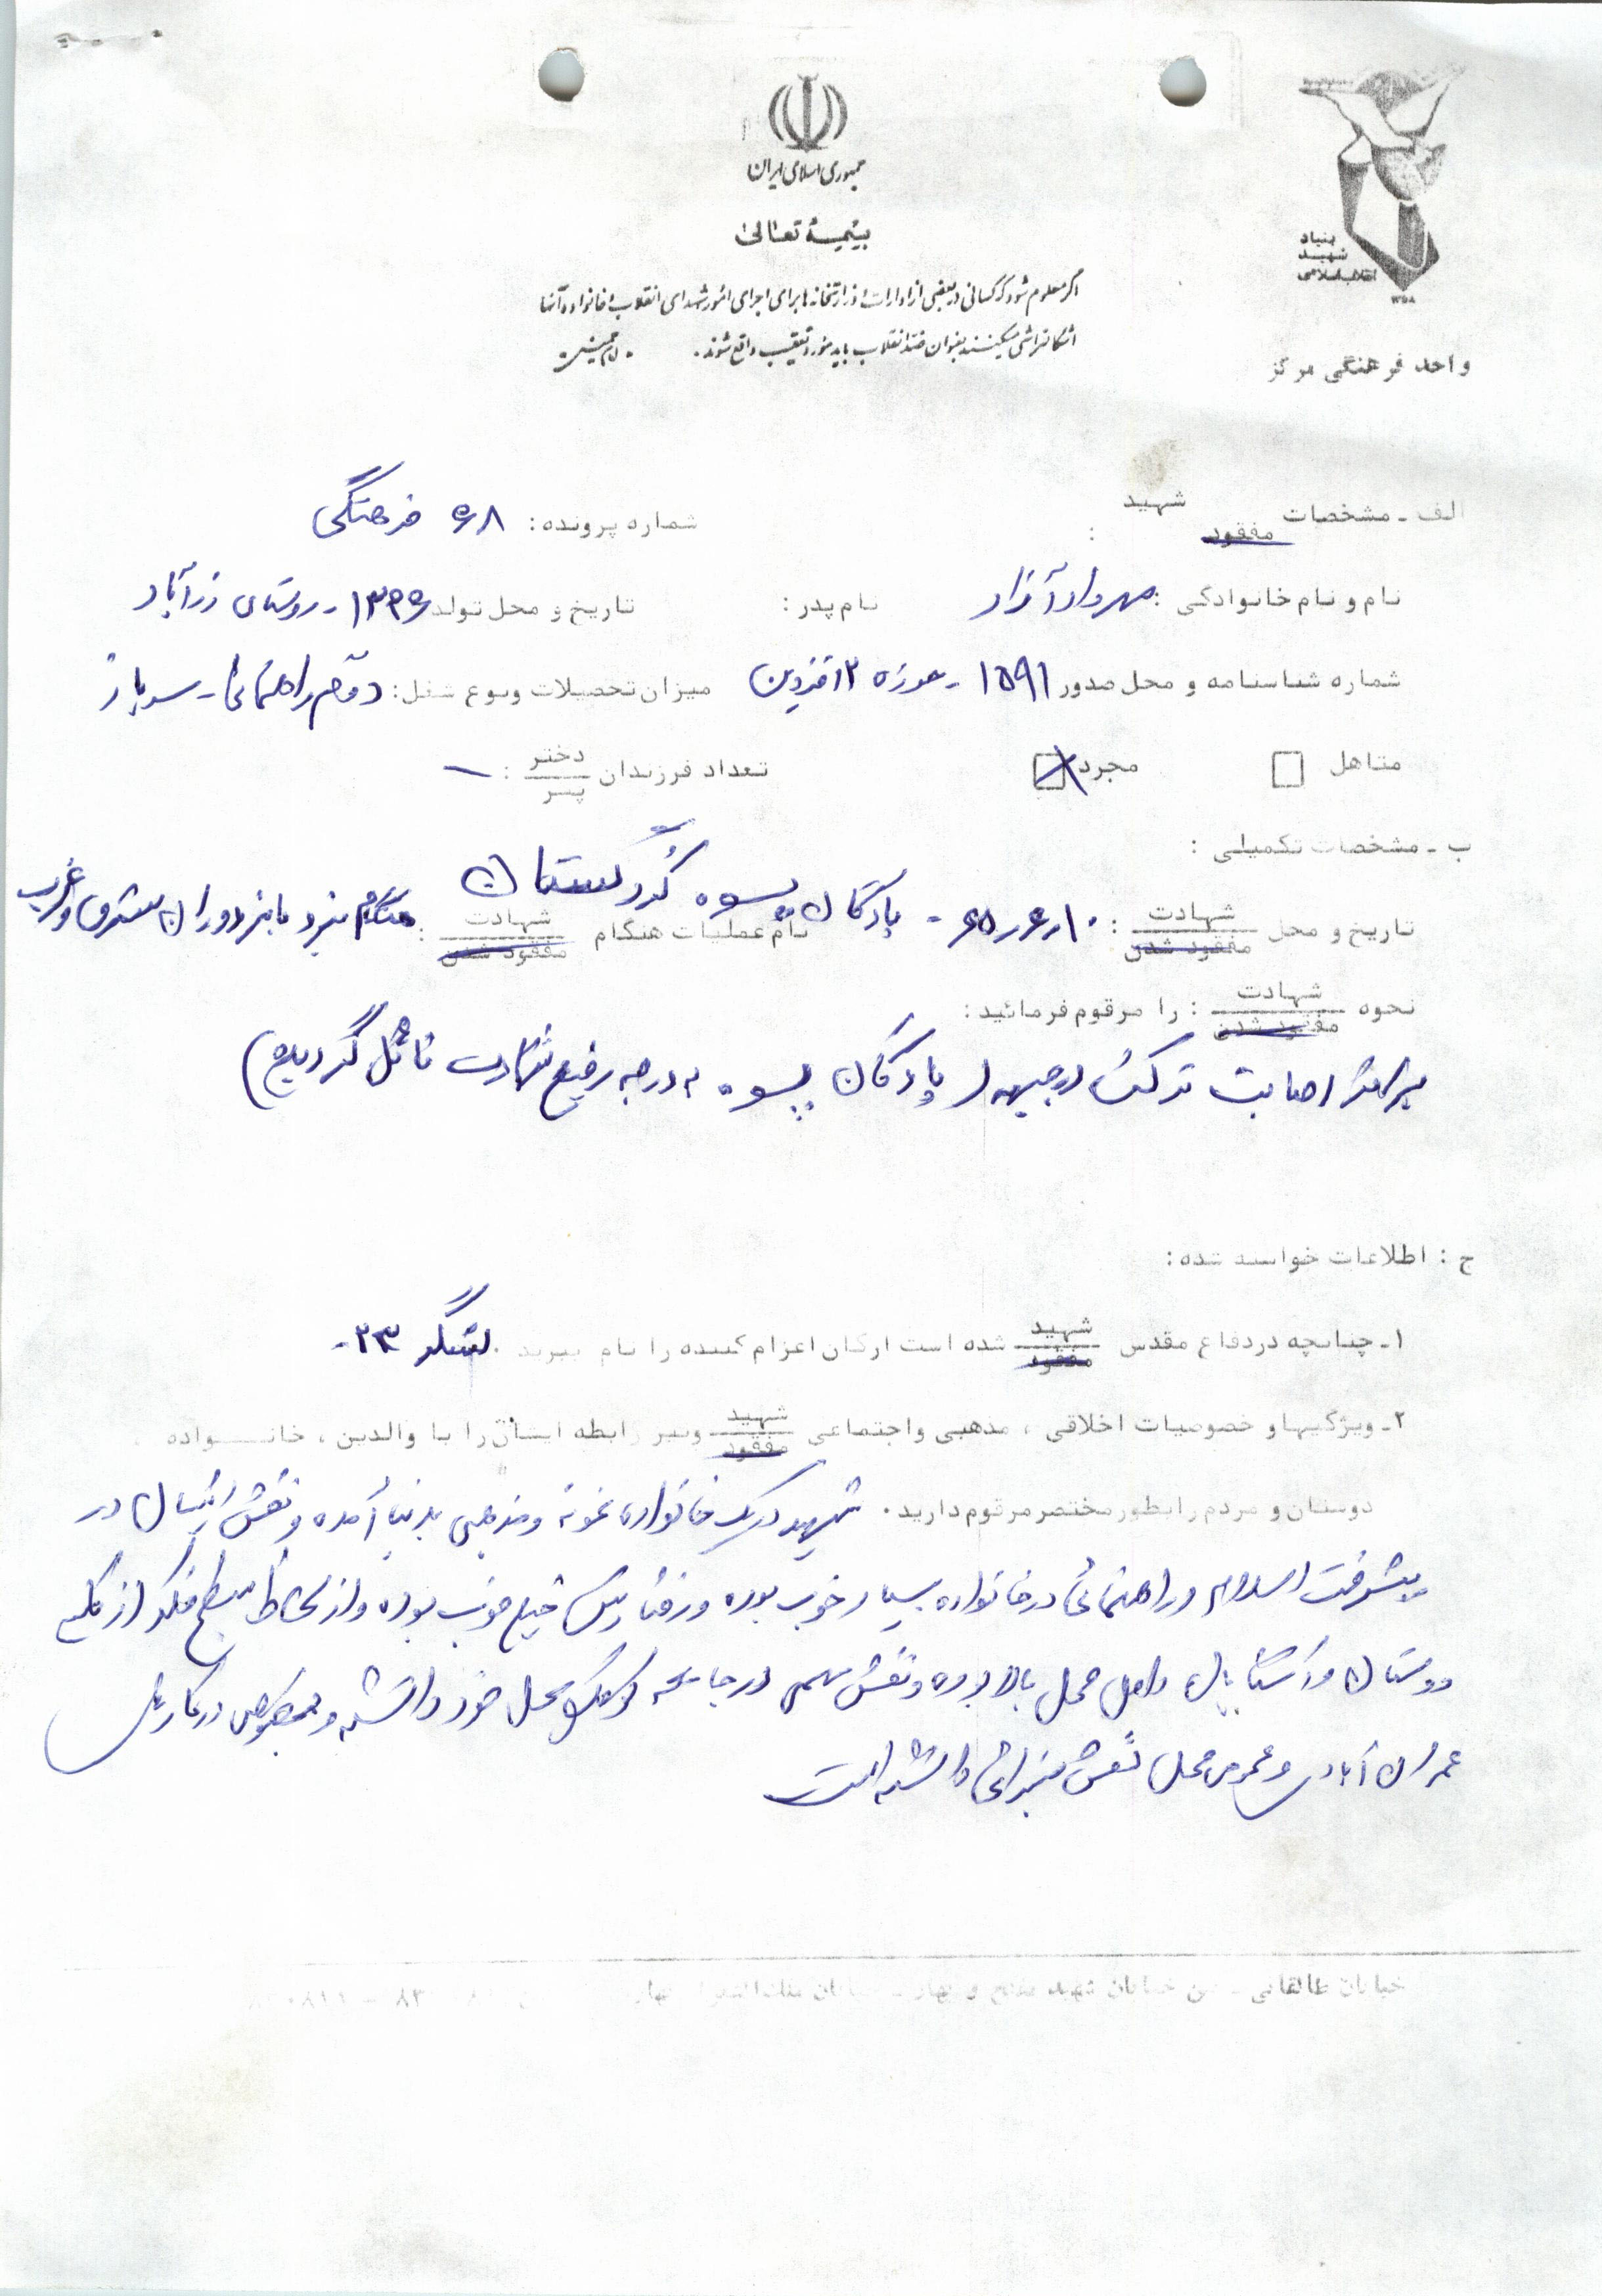 جمهوری اسلامی ایران
بنیاد
شهید
انقلاب اسلامی
بسمه تعالی
اگر معلوم شود که کسانی در بعضی از ادارات و وزارتخانه ها برای اجرای امور شهدای انقلاب و خانواده آنها
اشکالتراشی میکنند بعنوان ضد انقلاب باید مورد تعقیب واقع شوند. امام خمینی
واحد فرهنگی مرکز
الف ـ مشخصات شهید مفقود :
شماره پرونده : ۶۸ فرهنگی
نام و نام خانوادگی : مهرداد آزاد نام پدر : تاریخ و محل تولد ۱۳۴۶ ـ روستای زرآباد
شماره شناسنامه و محل صدور ۱۵۹۱ ـ حوزه ۱۲ قزوین میزان تحصیلات و نوع شغل : دوم راهنمائی ـ سرباز
متاهل مجرد تعداد فرزندان دختر پسر : ـ
ب ـ مشخصات تکمیلی :
تاریخ و محل شهادت مفقود شدن : ۱۰ر۶ر۶۵ ـ پادگان پسوه کردستان نام عملیات هنگام شهادت مفقود شدن : هنگام نبرد با مزدوران شرق و غرب
نحوه شهادت مفقود شدن : را مرقوم فرمائید :
براثر اصابت ترکش در جبهه (پادگان پسوه به درجه رفیع شهادت نائل گردید)
ج : اطلاعات خواسته شده :
۱ـ چنانچه در دفاع مقدس شهید مفقود شده است ارگان اعزام کننده را نام ببرید . لشگر ۲۳ـ
۲ـ ویژگیها و خصوصیات اخلاقی ، مذهبی و اجتماعی شهید مفقود ونیز رابطه ایشان را با والدین ، خانواده
دوستان و مردم را بطور مختصر مرقوم دارید . شهید در یک خانواده نمونه و مذهبی بدنیا آمده و نقش ایشان در
پیشرفت اسلام و راهنمائی در خانواده بسیار خوب بوده و رفتارش خیلی خوب بوده و از لحاظ سطح فکر از کلیه
دوستان و آشنایان و اهل محل بالا بوده و نقش مهمی در جامعه کوچک محل خود داشته و بخصوص در کارهای
عمران آبادی و عمومی محل نقش بسزائی داشته است
خیابان طالقانی ـ بین خیابان شهید مفتح و بهار ـ